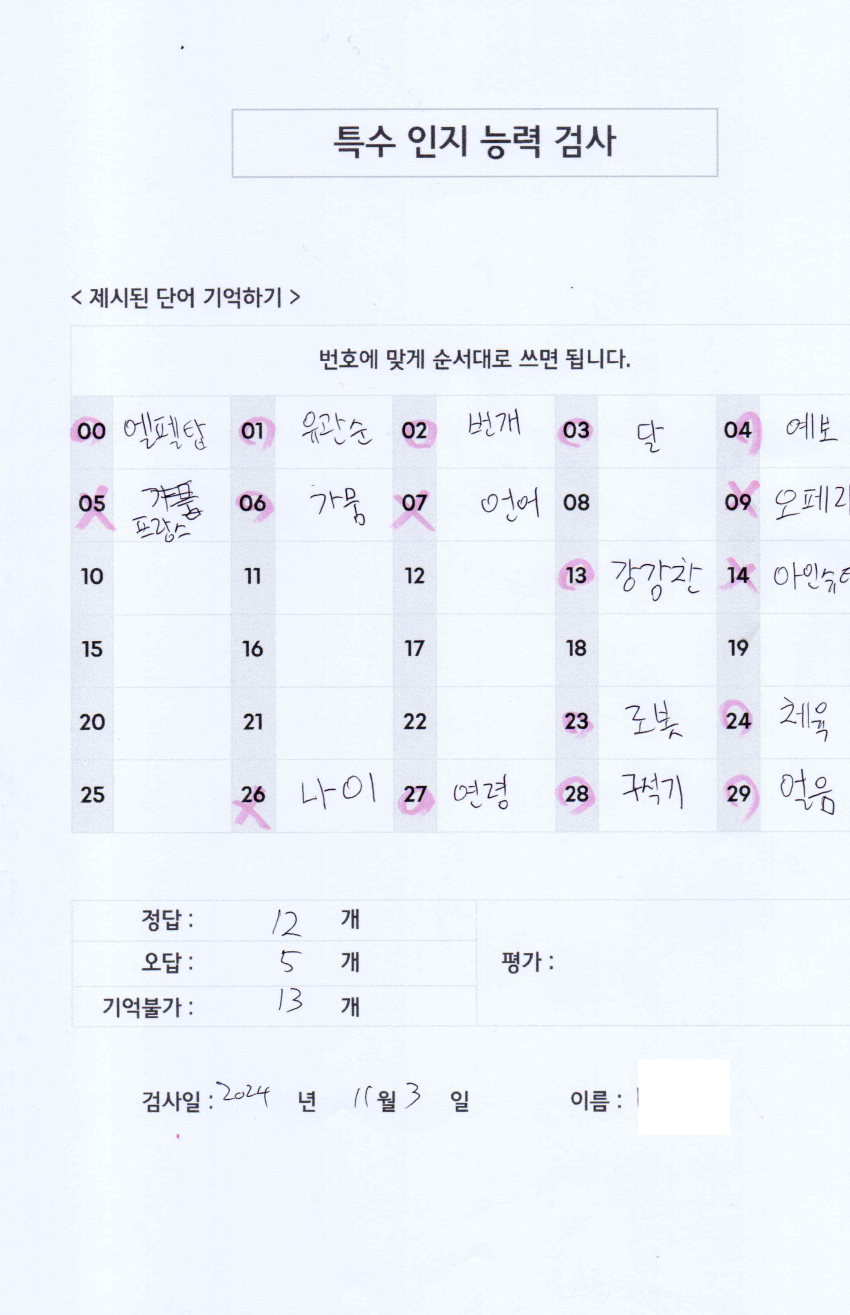 특수 인지 능력 검사
< 제시된 단어 기억하기 >
번호에 맞게 순서대로 쓰면 됩니다.
00 엘펠탑 01 유관순 02 번개 03 달 04 예보
05 프랑스 06 가뭄 07 언어 08 09 오페라
10 11 12 13 강강찬 14 아인슈
15 16 17 18 19
20 21 22 23 로봇 24 체육
25 26 나이 27 연령 28 구석기 29 얼음
정답 : 12 개
오답 : 5 개 평가 :
기억불가 : 13 개
검사일 : 2024 년 11월 3 일 이름 :